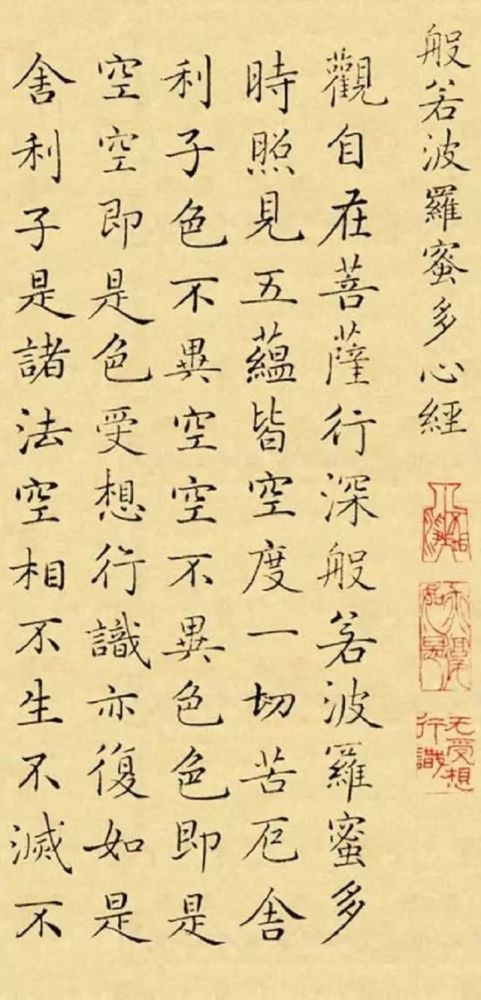 般若波羅蜜多心經
无受想
行識
觀自在菩薩行深般若波羅蜜多
時照見五蘊皆空度一切苦厄舍
利子色不異空空不異色色即是
空空即是色受想行識亦復如是
舍利子是諸法空相不生不滅不